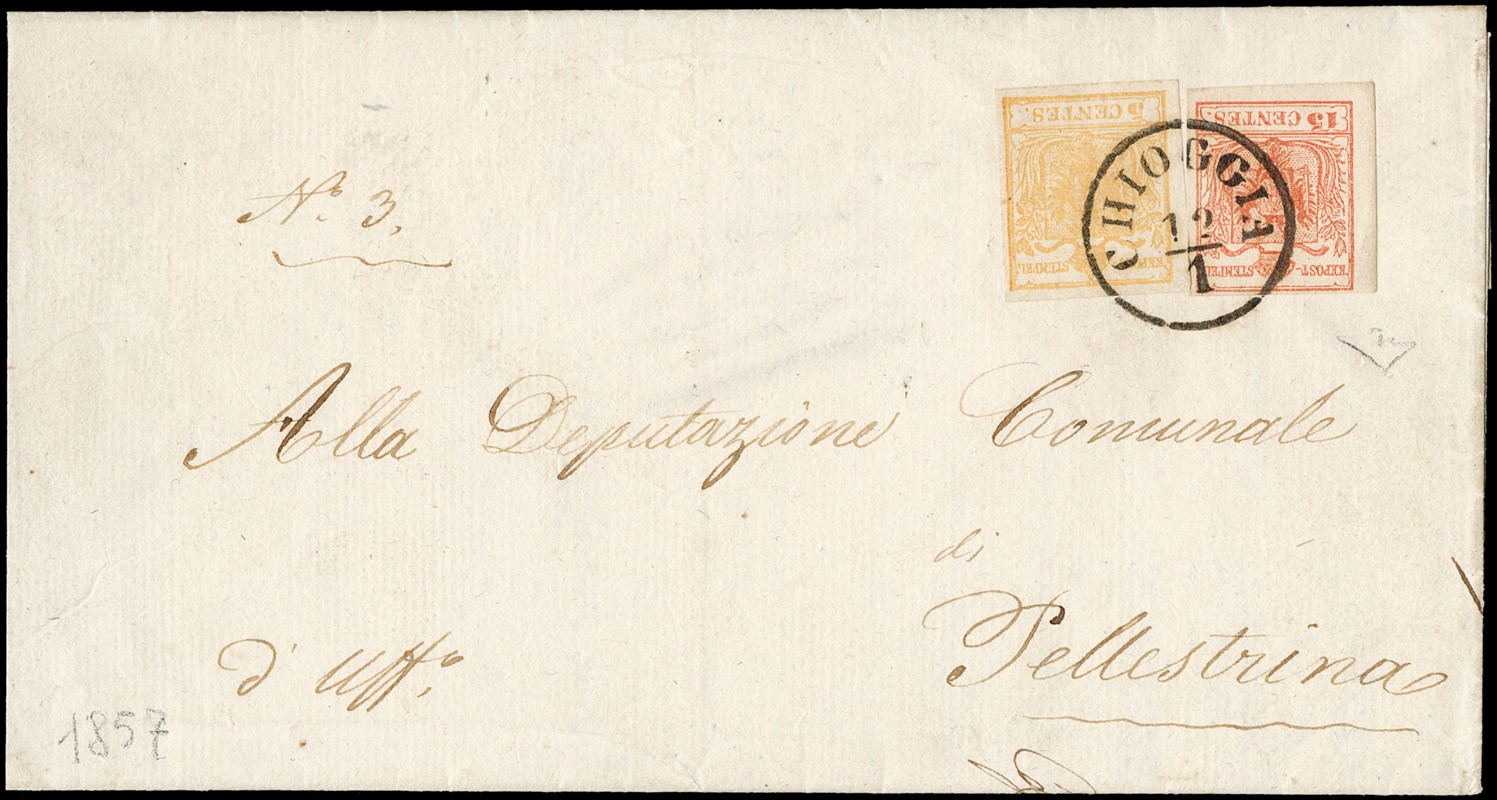 5 CENTES.
KKPOST-STEMPEL
15 CENTES.
KKPOST-STEMPEL
CHIOGGIA
12
1
N.o 3.
Alla Deputazione Comunale
di
Pellestrina
d' Uff.o
1857